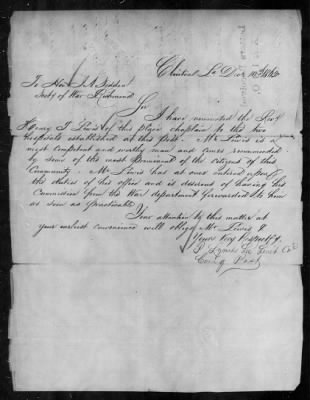 Clinton La Dec 10th 1863
To Hon J. A. Seddon
Secty of War Richmond
Sir
I have nominated the Rev
Henry T Lewis of this place chaplain to the two
Hospitals established at this Post. Mr Lewis is a
most competent and worthy man and comes recommended
by some of the most prominent of the citizens of this
Community. Mr Lewis has at once entered upon
the duties of his office and is desirous of having his
Commission from the War department forwarded to him
as soon as practicable
Your attention to this matter at
your earliest convenience will oblige Mr Lewis &
Yours Very Respectfy
Comdg Post